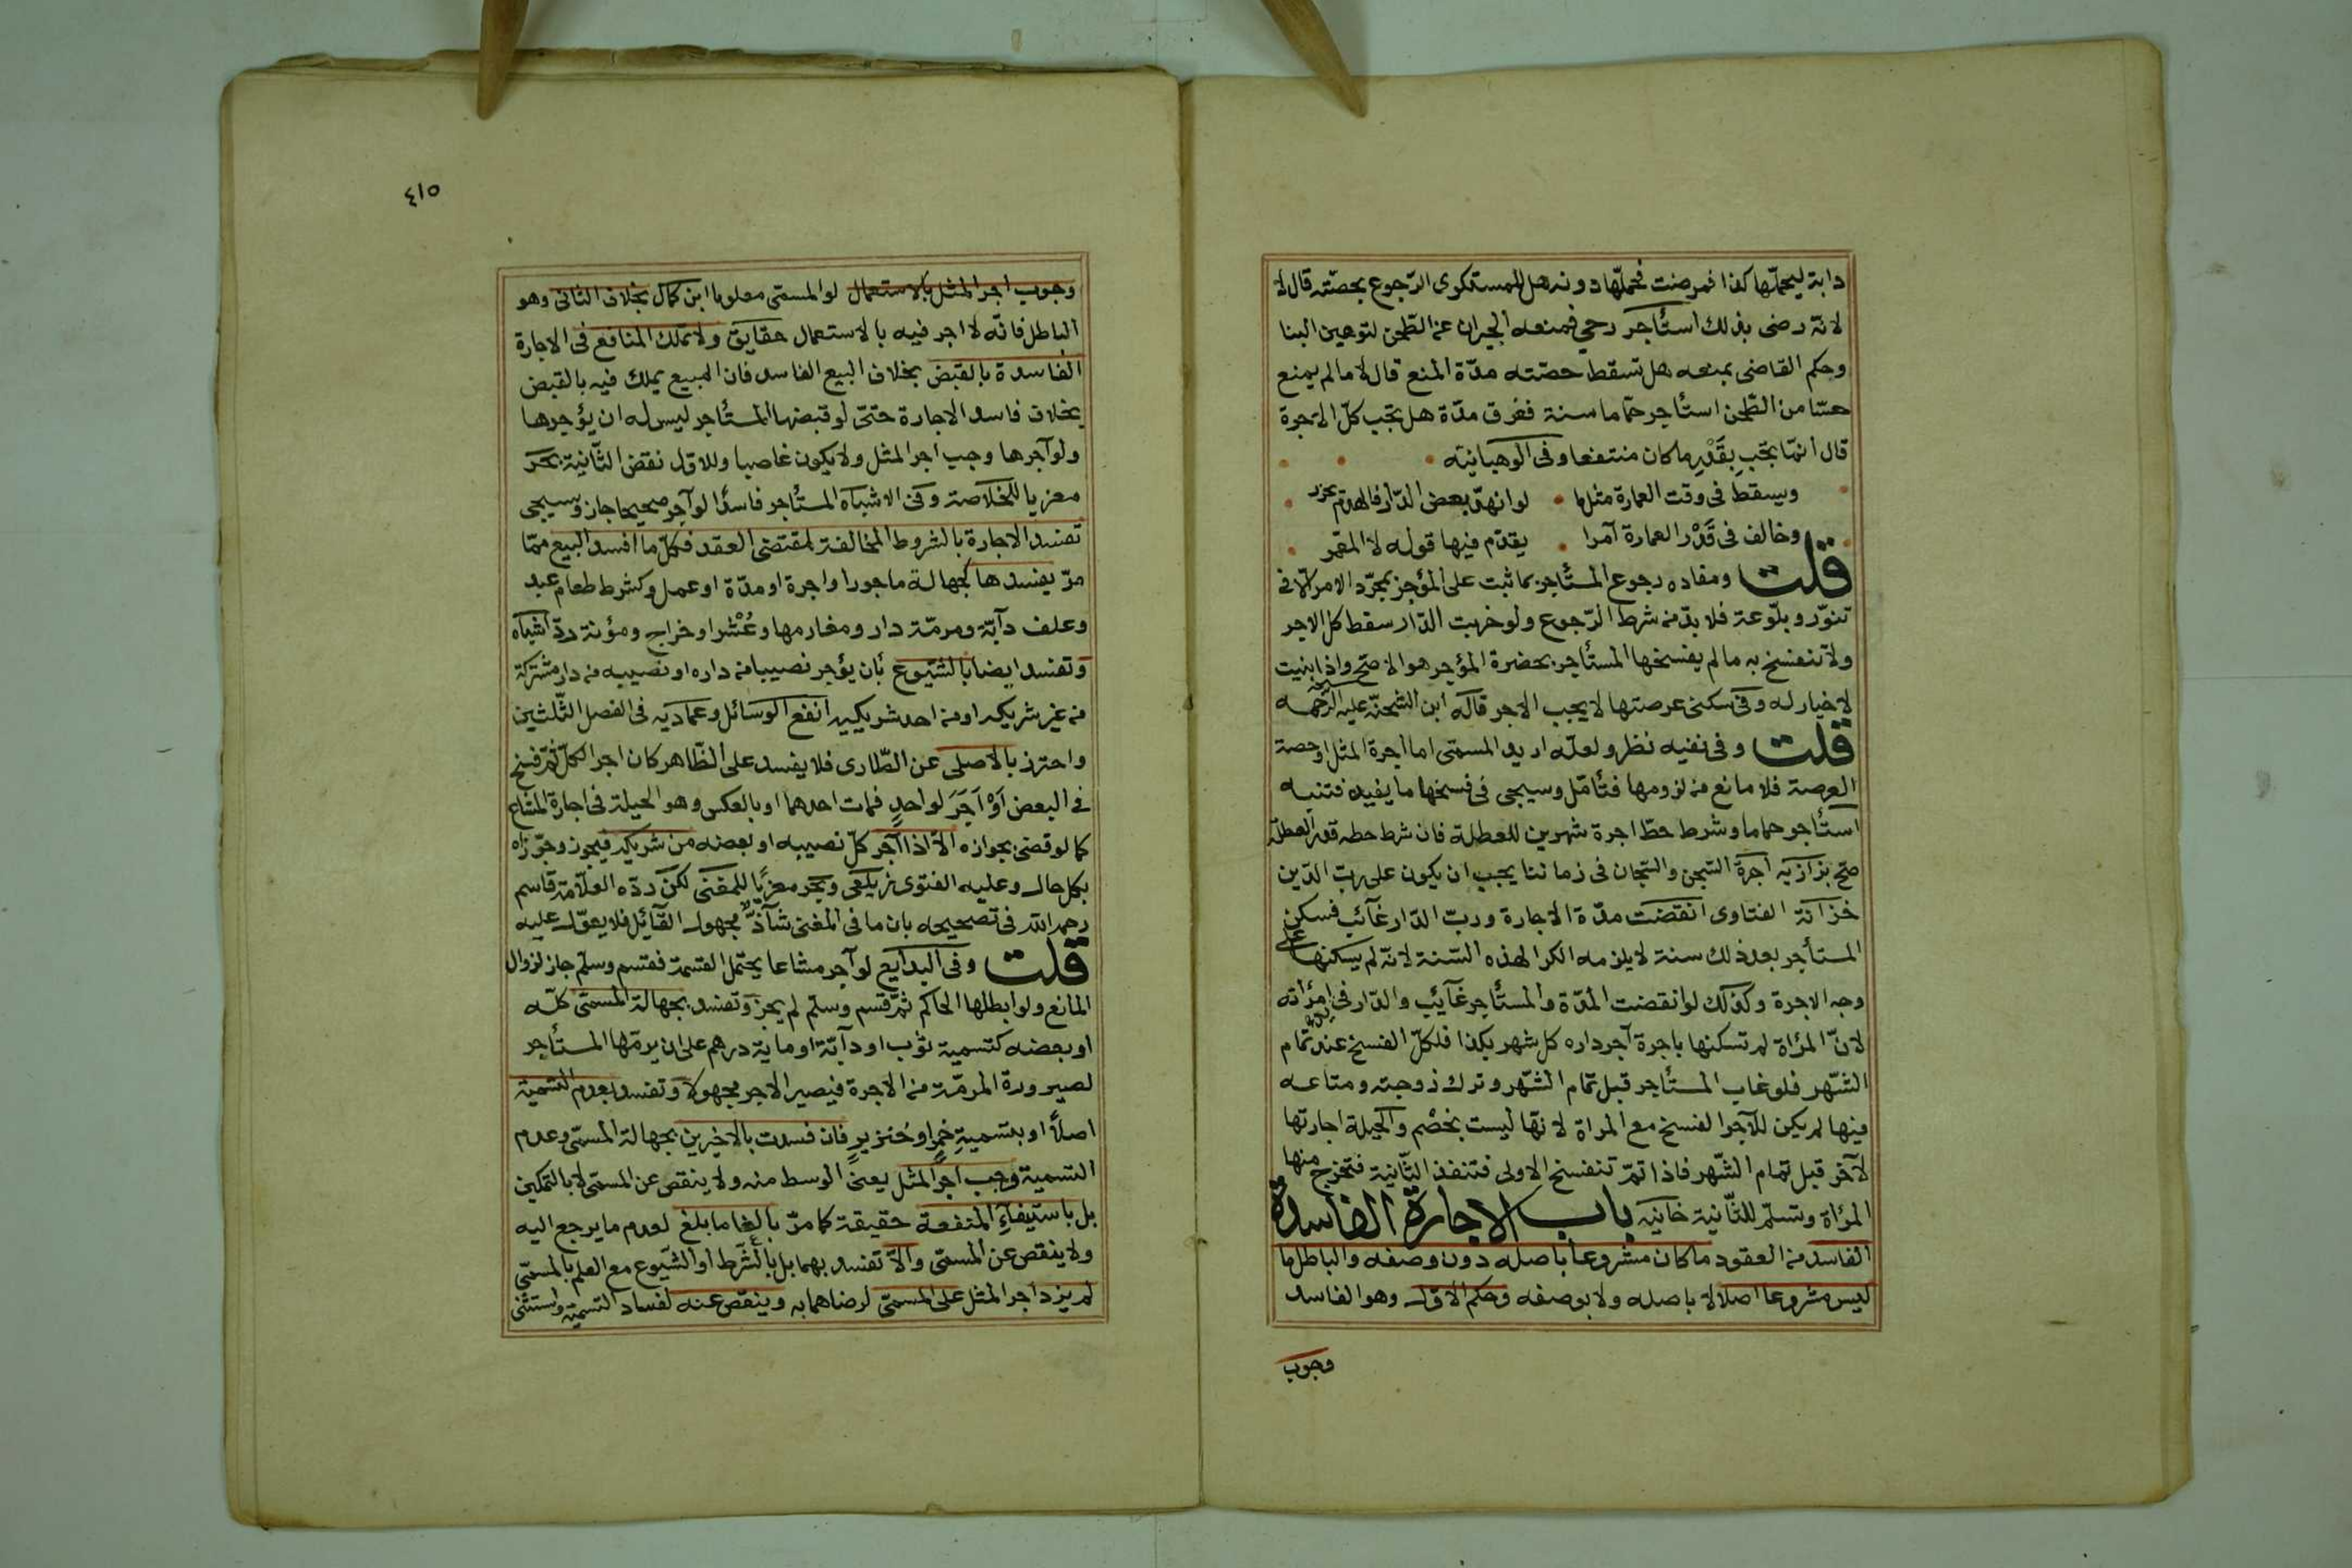 دابة ليحملها كذا فمرضت فحملها دونه هل للمستكرى الرجوع بحصته قال لا
لانه رضى بذلك استأجر رحى فمنعه الجيران عن الطحن لتوهين البنا
وحكم القاضى بمنعه هل تسقط حصته مدة المنع قال لا مالم يمنع
حسا من الطحن استأجر حماما سنة فغرق مدة هل تجب كل الاجرة
قال انما تجب بقدر ما كان منتفعا وفى الوهبانية
ويسقط فى وقت العمارة مثلما • لو انهد بعض الدار فالهدم يحزر
وخالف فى قدر العمارة آمرا • يقدم فيها قوله لا المعمر
قلت ومفاده رجوع المستأجر بما ثبت على المؤجر بمجرد الامر الا فى
تنور وبلوعة فلا بد من شرط الرجوع ولو خربت الدار سقط كل الاجر
ولا تنفسخ به مالم يفسخها المستأجر بحضرة المؤجر هو الاصح واذا بنيت
لا خيار له وفى سكنى عرصتها لا يجب الاجر قاله ابن الشحنة عليه الرحمه
قلت وفى نفيه نظر ولعله اريد المسمى اما اجرة المثل او حصة
العرصة فلا مانع من لزومها فتأمل وسيجى فى فسخها ما يفيده فتنبه
استأجر حماما وشرط حط اجرة شهرين للعطلة فان شرط حطه قدر العطلة
صح بزازيه اجرة السجن والسجان فى زماننا يجب ان يكون على رب الدين
خزانة الفتاوى انقضت مدة الاجارة ورب الدار غآئب فسكن
المستأجر بعد ذلك سنة لا يلزمه الكرا لهذه السنة لانه لم يسكنها على
وجه الاجرة وكذلك لو انقضت المدة والمستأجر غآئب والدار فى يد امرأته
لان المرأة لم تسكنها باجرة آجر داره كل شهر بكذا فلكل الفسخ عند تمام
الشهر فلو غاب المستأجر قبل تمام الشهر وترك زوجته ومتاعه
فيها لم يكن للآجر الفسخ مع المراة لانها ليست بخصم والحيلة اجارتها
لآخر قبل تمام الشهر فاذا تم تنفسخ الاولى فتنفذ الثانية فتخرج منها
المرأة وتسلم للثانية خانيه باب الاجارة الفاسدة
الفاسد من العقود ما كان مشروعا باصله دون وصفه والباطل ما
ليس مشروعا اصلا لا باصله ولا بوصفه وحكم الاول وهو الفاسد
وجوب
٤١٥
وجوب اجر المثل بالاستعمال لو المسمى معلوما ابن كمال بخلاف الثانى وهو
الباطل فانه لا اجر فيه بالاستعمال حقايق ولا تملك المنافع فى الاجارة
الفاسدة بالقبض بخلاف البيع الفاسد فان المبيع يملك فيه بالقبض
بخلاف فاسد الاجارة حتى لو قبضها المستأجر ليس له ان يؤجرها
ولو آجرها وجب اجر المثل ولا يكون غاصبا وللاول نقض الثانية بحر
معزيا للخلاصة وفى الاشباه المستأجر فاسدا لو آجر صحيحا جاز وسيجى
تفسد الاجارة بالشروط المخالفة لمقتضى العقد فكل ما افسد البيع مما
مر يفسدها كجهالة ماجور او اجرة او مدة او عمل وكشرط طعام عبد
وعلف دآبة ومرمة دار ومغارمها وعشر او خراج ومؤنة رد اشباه
وتفسد ايضا بالشيوع بأن يؤجر نصيبا من داره او نصيبه من دار مشتركة
من غير شريكه او من احد شريكيه انفع الوسائل وعماديه فى الفصل الثلثين
واحترز بالاصلى عن الطارى فلا يفسد على الظاهر كان اجر الكل ثم فسخ
فى البعض أو آجر لواحد فمات احدهما او بالعكس وهو الحيلة فى اجارة المشاع
كما لو قضى بجوازه الا اذا آجر كل نصيبه او بعضه من شريكه فيجوز وجوزاه
بكل حال وعليه الفتوى زيلعى وبحر معزيا للمغنى لكن رده العلامة قاسم
رحمه الله فى تصحيحه بان ما فى المغنى شآذ مجهول القآئل فلا يعول عليه
قلت وفى البدايع لو آجر مشاعا يحتمل القسمة فقسم وسلم جاز لزوال
المانع ولو ابطلها الحاكم ثم قسم وسلم لم يجز وتفسد بجهالة المسمى كله
او بعضه كتسمية ثوب او دآبة او ماية درهم على ان يرمها المستأجر
لصيرورة المرمة من الاجرة فيصير الاجر مجهولا وتفسد بعدم التسمية
اصلا او بتسمية خمر او خنزير فان فسدت بالاخيرين بجهالة المسمى وعدم
التسمية وجب اجر المثل يعنى الوسط منه ولا ينقص عن المسمى لا بالتمكين
بل باستيفآء المنفعة حقيقة كما مر بالغا ما بلغ لعدم ما يرجع اليه
ولا ينقص عن المسمى والا تفسد بهما بل بالشرط او الشيوع مع العلم بالمسمى
لم يزد اجر المثل على المسمى لرضاهما به وينقص عنه لفساد التسمية واستثنى